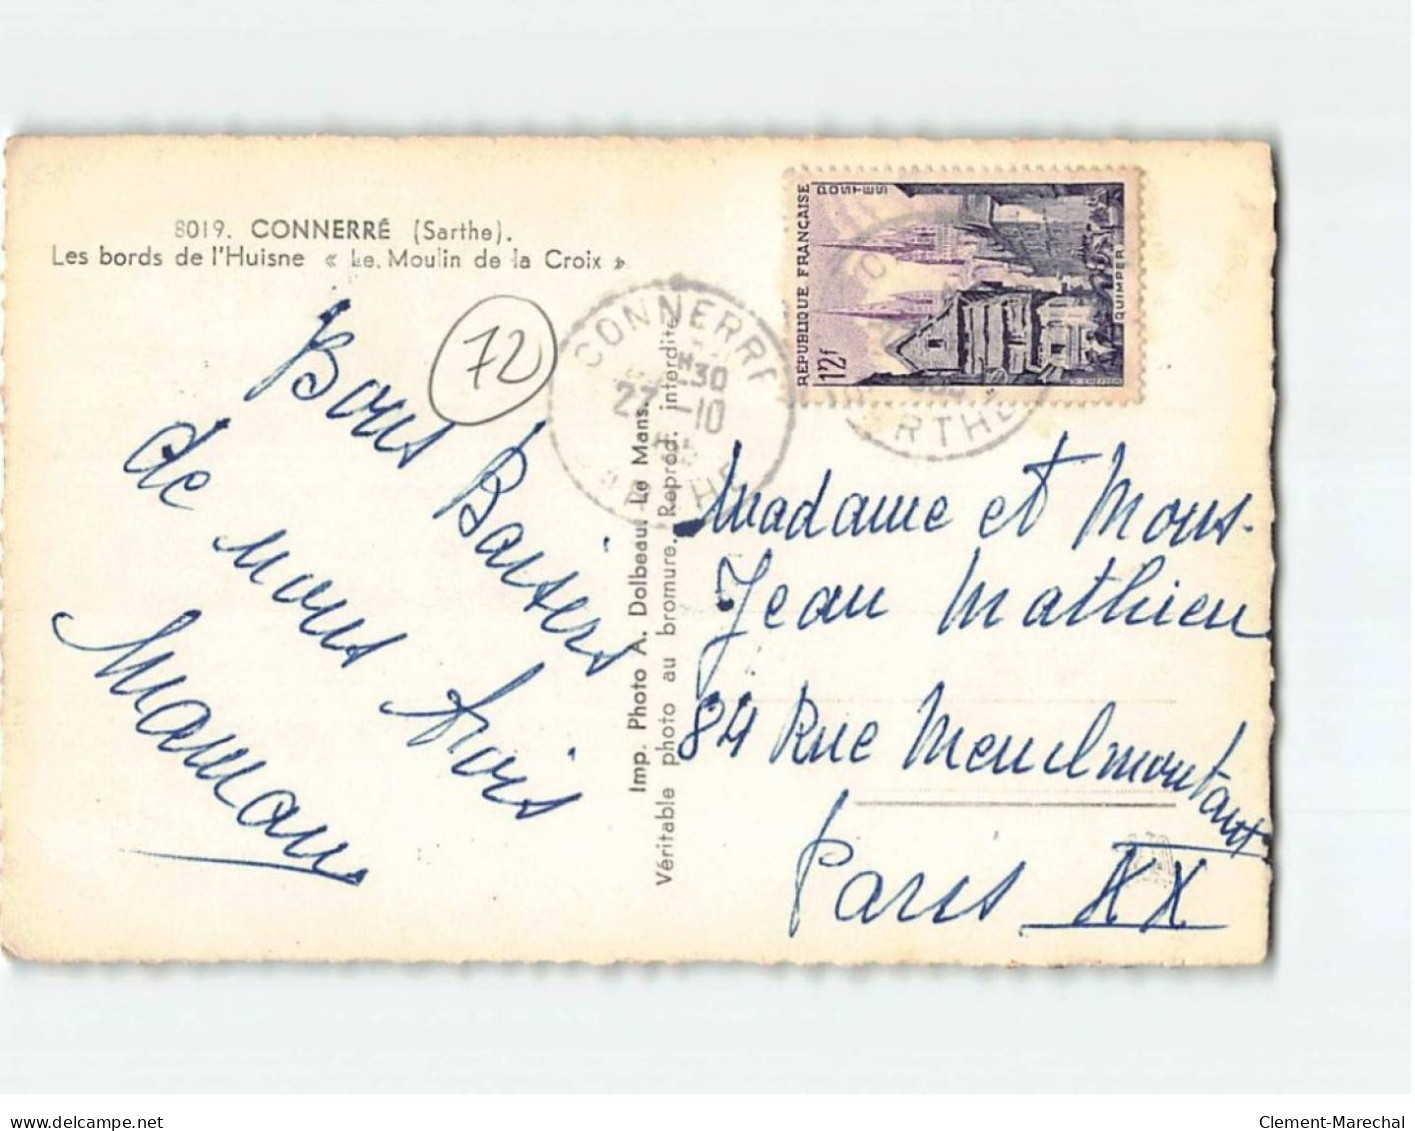 8019. CONNERRÉ (Sarthe).
Les bords de l'Huisne « Le Moulin de la Croix »
72
Bons Baisers
de nous trois
Maman
CONNERRE
30
27 -10
SARTHE
Imp. Photo A. Dolbeau. Le Mans.
Véritable photo au bromure. Reprod. interdite
REPUBLIQUE FRANÇAISE
POSTES
12f
QUIMPER
SARTHE
Madame et Mons.
Jean Mathieu
84 Rue Menilmontant
Paris XX
delcampe.net
Clement-Marechal